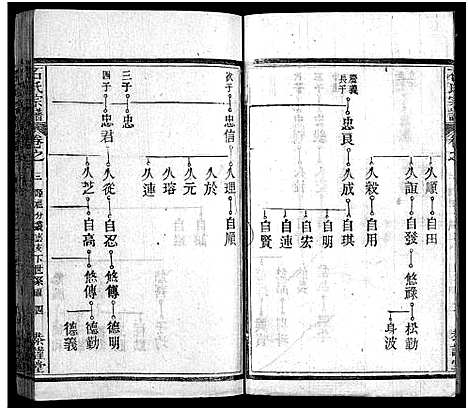 慶義
長子
忠良
久順
久誼
久毅
久成
自田
自發
自用
自琪
自明
自宏
自連
自賢
悠祿
松勤
身波
次子
忠信
三子
忠
四子
忠君
久理
久於
久元
久瑢
久連
久從
久芝
自順
自忍
自高
悠傳
悠傳
德明
德勤
德義
石氏宗譜
卷之
三
四